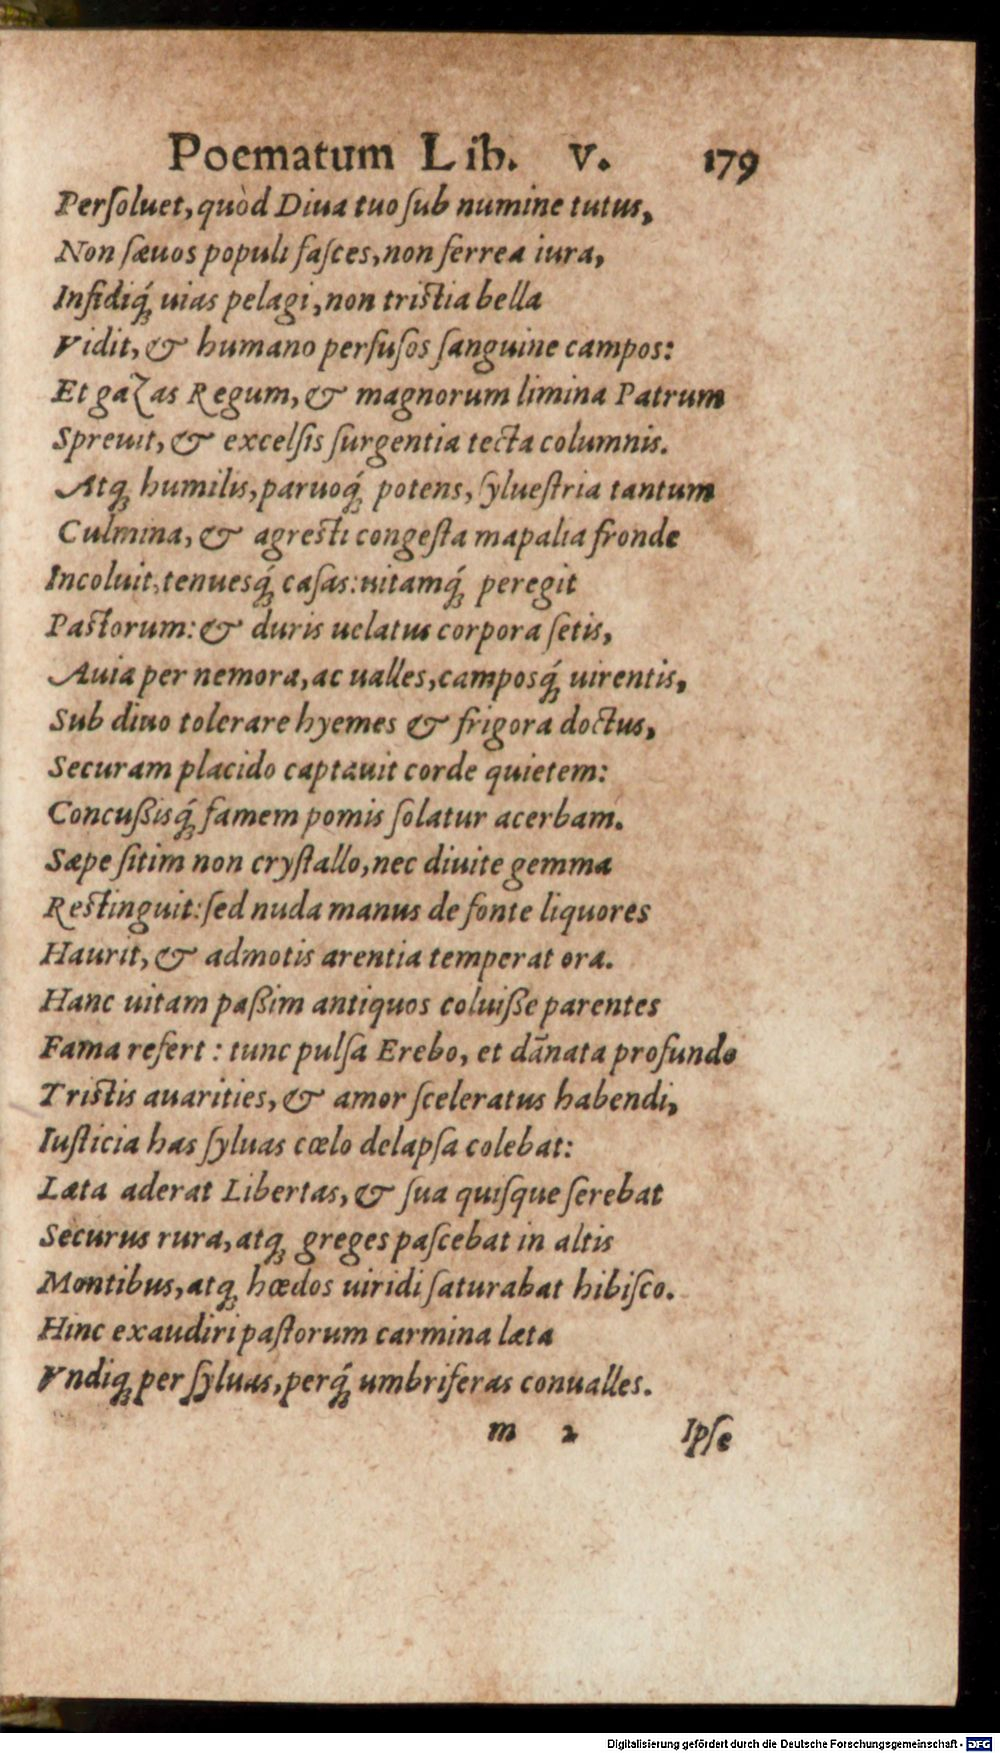 Poematum Lib. V. 179
Perſoluet, quòd Diua tuo ſub numine tutus,
Non ſæuos populi faſces, non ferrea iura,
Infidiq́; uias pelagi, non triſtia bella
Vidit, & humano perfuſos ſanguine campos:
Et gazas Regum, & magnorum limina Patrum
Spreuit, & excelſis ſurgentia tecta columnis.
Atq; humilis, paruoq́; potens, ſylueſtria tantum
Culmina, & agreſti congeſta mapalia fronde
Incoluit, tenuesq́; caſas: uitamq́; peregit
Paſtorum: & duris uelatus corpora ſetis,
Auia per nemora, ac ualles, camposq́; uirentis,
Sub diuo tolerare hyemes & frigora doctus,
Securam placido captauit corde quietem:
Concußisq́; famem pomis ſolatur acerbam.
Sæpe ſitim non cryſtallo, nec diuite gemma
Reſtinguit: ſed nuda manus de fonte liquores
Haurit, & admotis arentia temperat ora.
Hanc uitam paßim antiquos coluiße parentes
Fama refert : tunc pulſa Erebo, et dānata profundo
Triſtis auarities, & amor ſceleratus habendi,
Iuſticia has ſyluas cœlo delapſa colebat:
Læta aderat Libertas, & ſua quiſque ſerebat
Securus rura, atq; greges paſcebat in altis
Montibus, atq; hœdos uiridi ſaturabat hibiſco.
Hinc exaudiri paſtorum carmina læta
Vndiq; per ſyluas, perq́; umbriferas conualles.
m 2 Ipſe
Digitalisierung gefördert durch die Deutsche Forschungsgemeinschaft - DFG